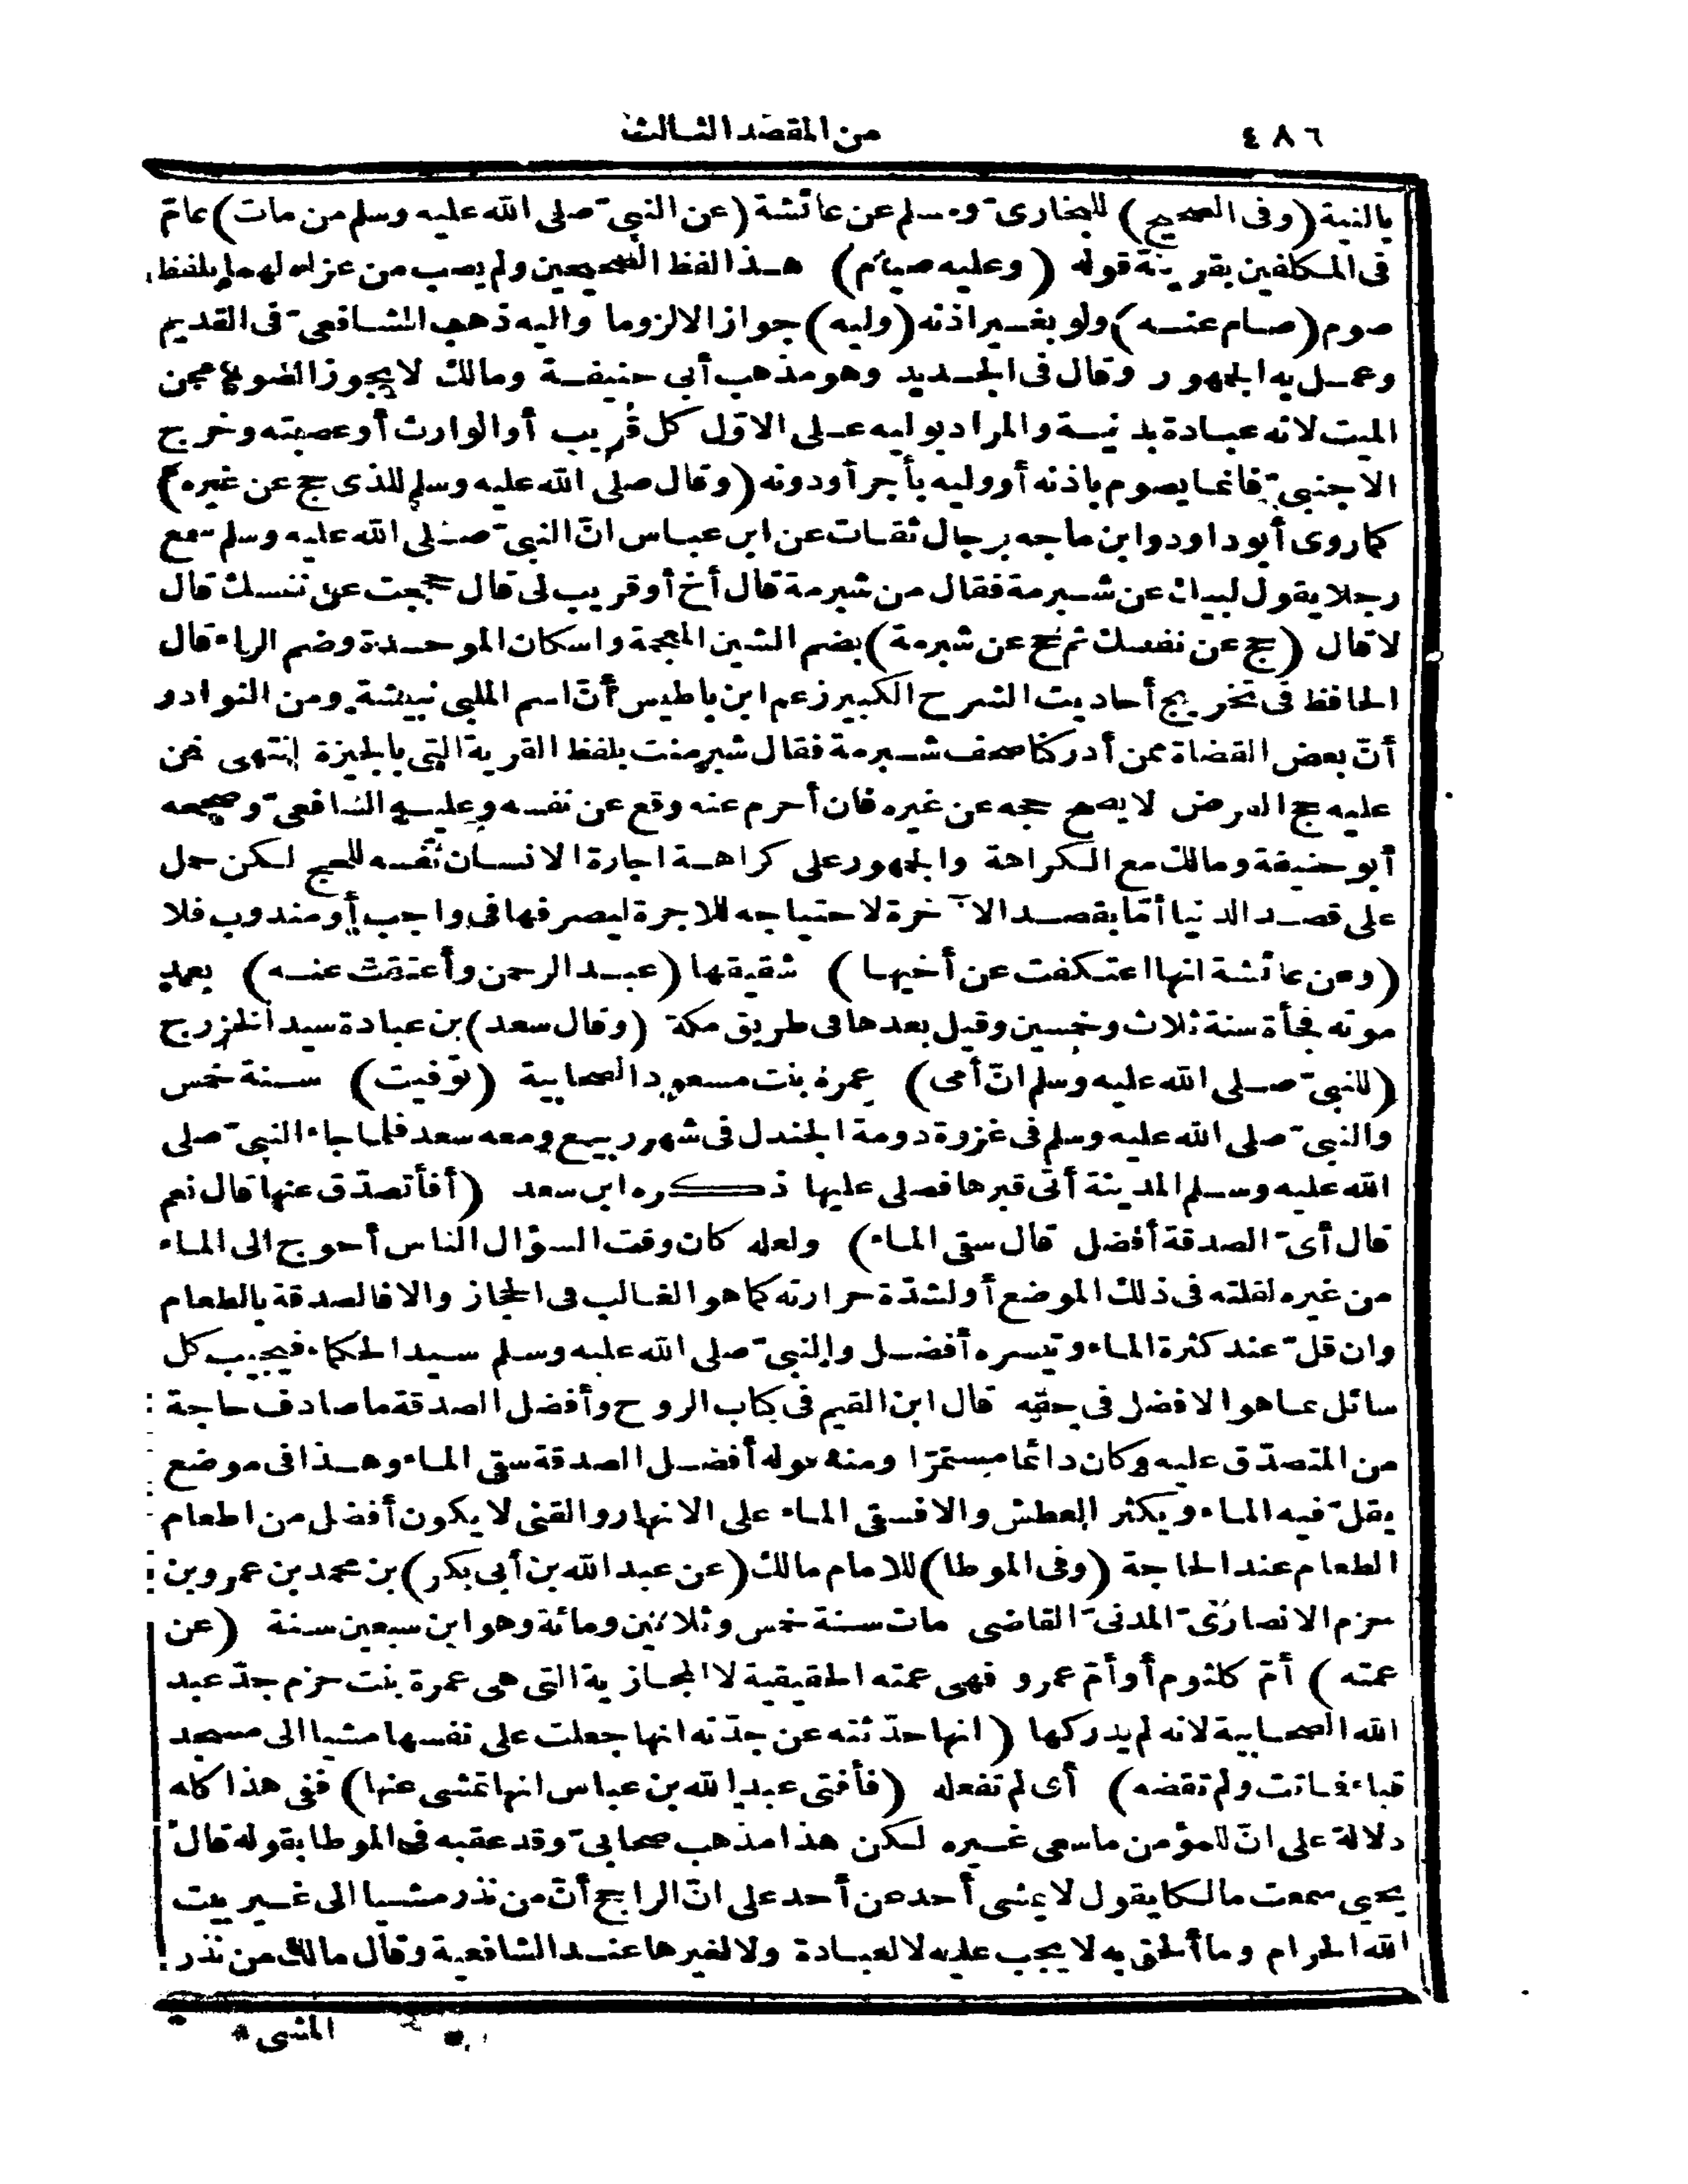 ٤٨٦ من المقصد الثالث
بالنية (وفى الصحيح) للبخارى ومسلم عن عائشة (عن النبى صلى الله عليه وسلم من مات) عامّ
فى المكلفين بقرينة قوله (وعليه صيام) هذا لفظ الصحيحين ولم يصب من عزاه لهما بلفظ
صوم (صام عنه) ولو بغير اذنه (وليه) جوازا لا لزوما واليه ذهب الشافعى فى القديم
وعمل به الجمهور وقال فى الجديد وهو مذهب أبى حنيفة ومالك لا يجوز الصوم عن
الميت لانه عبادة بدنية والمراد بوليه على الاوّل كل قريب أو الوارث أو عصبته وخرج
الاجنبى فانما يصوم باذنه أو وليه بأجر أو دونه (وقال صلى الله عليه وسلم للذى حج عن غيره)
كما روى أبو داود وابن ماجه برجال ثقات عن ابن عباس انّ النبى صلى الله عليه وسلم سمع
رجلا يقول لبيك عن شبرمة فقال من شبرمة قال أخ أو قريب لى قال حججت عن نفسك قال
لا قال (حج عن نفسك ثم حج عن شبرمة) بضم الشين المعجمة واسكان الموحدة وضم الراء قال
الحافظ فى تخريج أحاديث الشرح الكبير زعم ابن باطيس أنّ اسم الملبى نبيشة ومن النوادر
أنّ بعض القضاة ممن أدركنا صحف شبرمة فقال شبرمنت بلفظ القرية التى بالجيزة انتهى فمن
عليه حج الفرض لا يصح حجه عن غيره فان أحرم عنه وقع عن نفسه وعليه الشافعى وصححه
أبو حنيفة ومالك مع الكراهة والجمهور على كراهة اجارة الانسان نفسه للحج لكن حمل
على قصد الدنيا أمّا بقصد الآخرة لاحتياجه للاجرة ليصرفها فى واجب أو مندوب فلا
(وعن عائشة انها اعتكفت عن أخيها) شقيقها (عبد الرحمن وأعتقت عنه) بعد
موته فجأة سنة ثلاث وخمسين وقيل بعدها فى طريق مكة (وقال سعد) بن عبادة سيد الخزرج
(للنبى صلى الله عليه وسلم انّ أمى) عمرة بنت مسعود الصحابية (توفيت) سنة خمس
والنبى صلى الله عليه وسلم فى غزوة دومة الجندل فى شهر ربيع ومعه سعد فلما جاء النبى صلى
الله عليه وسلم المدينة أتى قبرها فصلى عليها ذكره ابن سعد (أفأتصدّق عنها قال نعم
قال أىّ الصدقة أفضل قال سقى الماء) ولعله كان وقت السؤال الناس أحوج الى الماء
من غيره لقلته فى ذلك الموضع أو لشدّة حرارته كما هو الغالب فى الحجاز والا فالصدقة بالطعام
وان قلّ عند كثرة الماء وتيسره أفضل والنبى صلى الله عليه وسلم سيد الحكماء فيجيب كل
سائل عما هو الافضل فى حقه قال ابن القيم فى كتاب الروح وأفضل الصدقة ما صادف حاجة
من المتصدّق عليه وكان دائما مستمرّا ومنه قوله أفضل الصدقة سقى الماء وهذا فى موضع
يقلّ فيه الماء ويكثر العطش والا فسقى الماء على الانهار والقنى لا يكون أفضل من اطعام
الطعام عند الحاجة (وفى الموطا) للامام مالك (عن عبد الله بن أبى بكر) بن محمد بن عمرو بن
حزم الانصارىّ المدنىّ القاضى مات سنة خمس وثلاثين ومائة وهو ابن سبعين سنة (عن
عمته) أمّ كلثوم أو أمّ عمرو فهى عمته الحقيقية لا المجازية التى هى عمرة بنت حزم جدّ عبد
الله الصحابية لانه لم يدركها (انها حدّثته عن جدّته انها جعلت على نفسها مشيا الى مسجد
قباء فماتت ولم تقضه) أى لم تفعله (فأفتى عبد الله بن عباس انها تمشى عنها) ففى هذا كله
دلالة على انّ للمؤمن ما سعى غيره لكن هذا مذهب صحابىّ وقد عقبه فى الموطا بقوله قال
يحيى سمعت مالكا يقول لا يمشى أحد عن أحد على انّ الراجح أنّ من نذر مشيا الى غير بيت
الله الحرام وما ألحق به لا يجب عليه لا لعبادة ولا لغيرها عند الشافعية وقال مالك من نذر
المشى